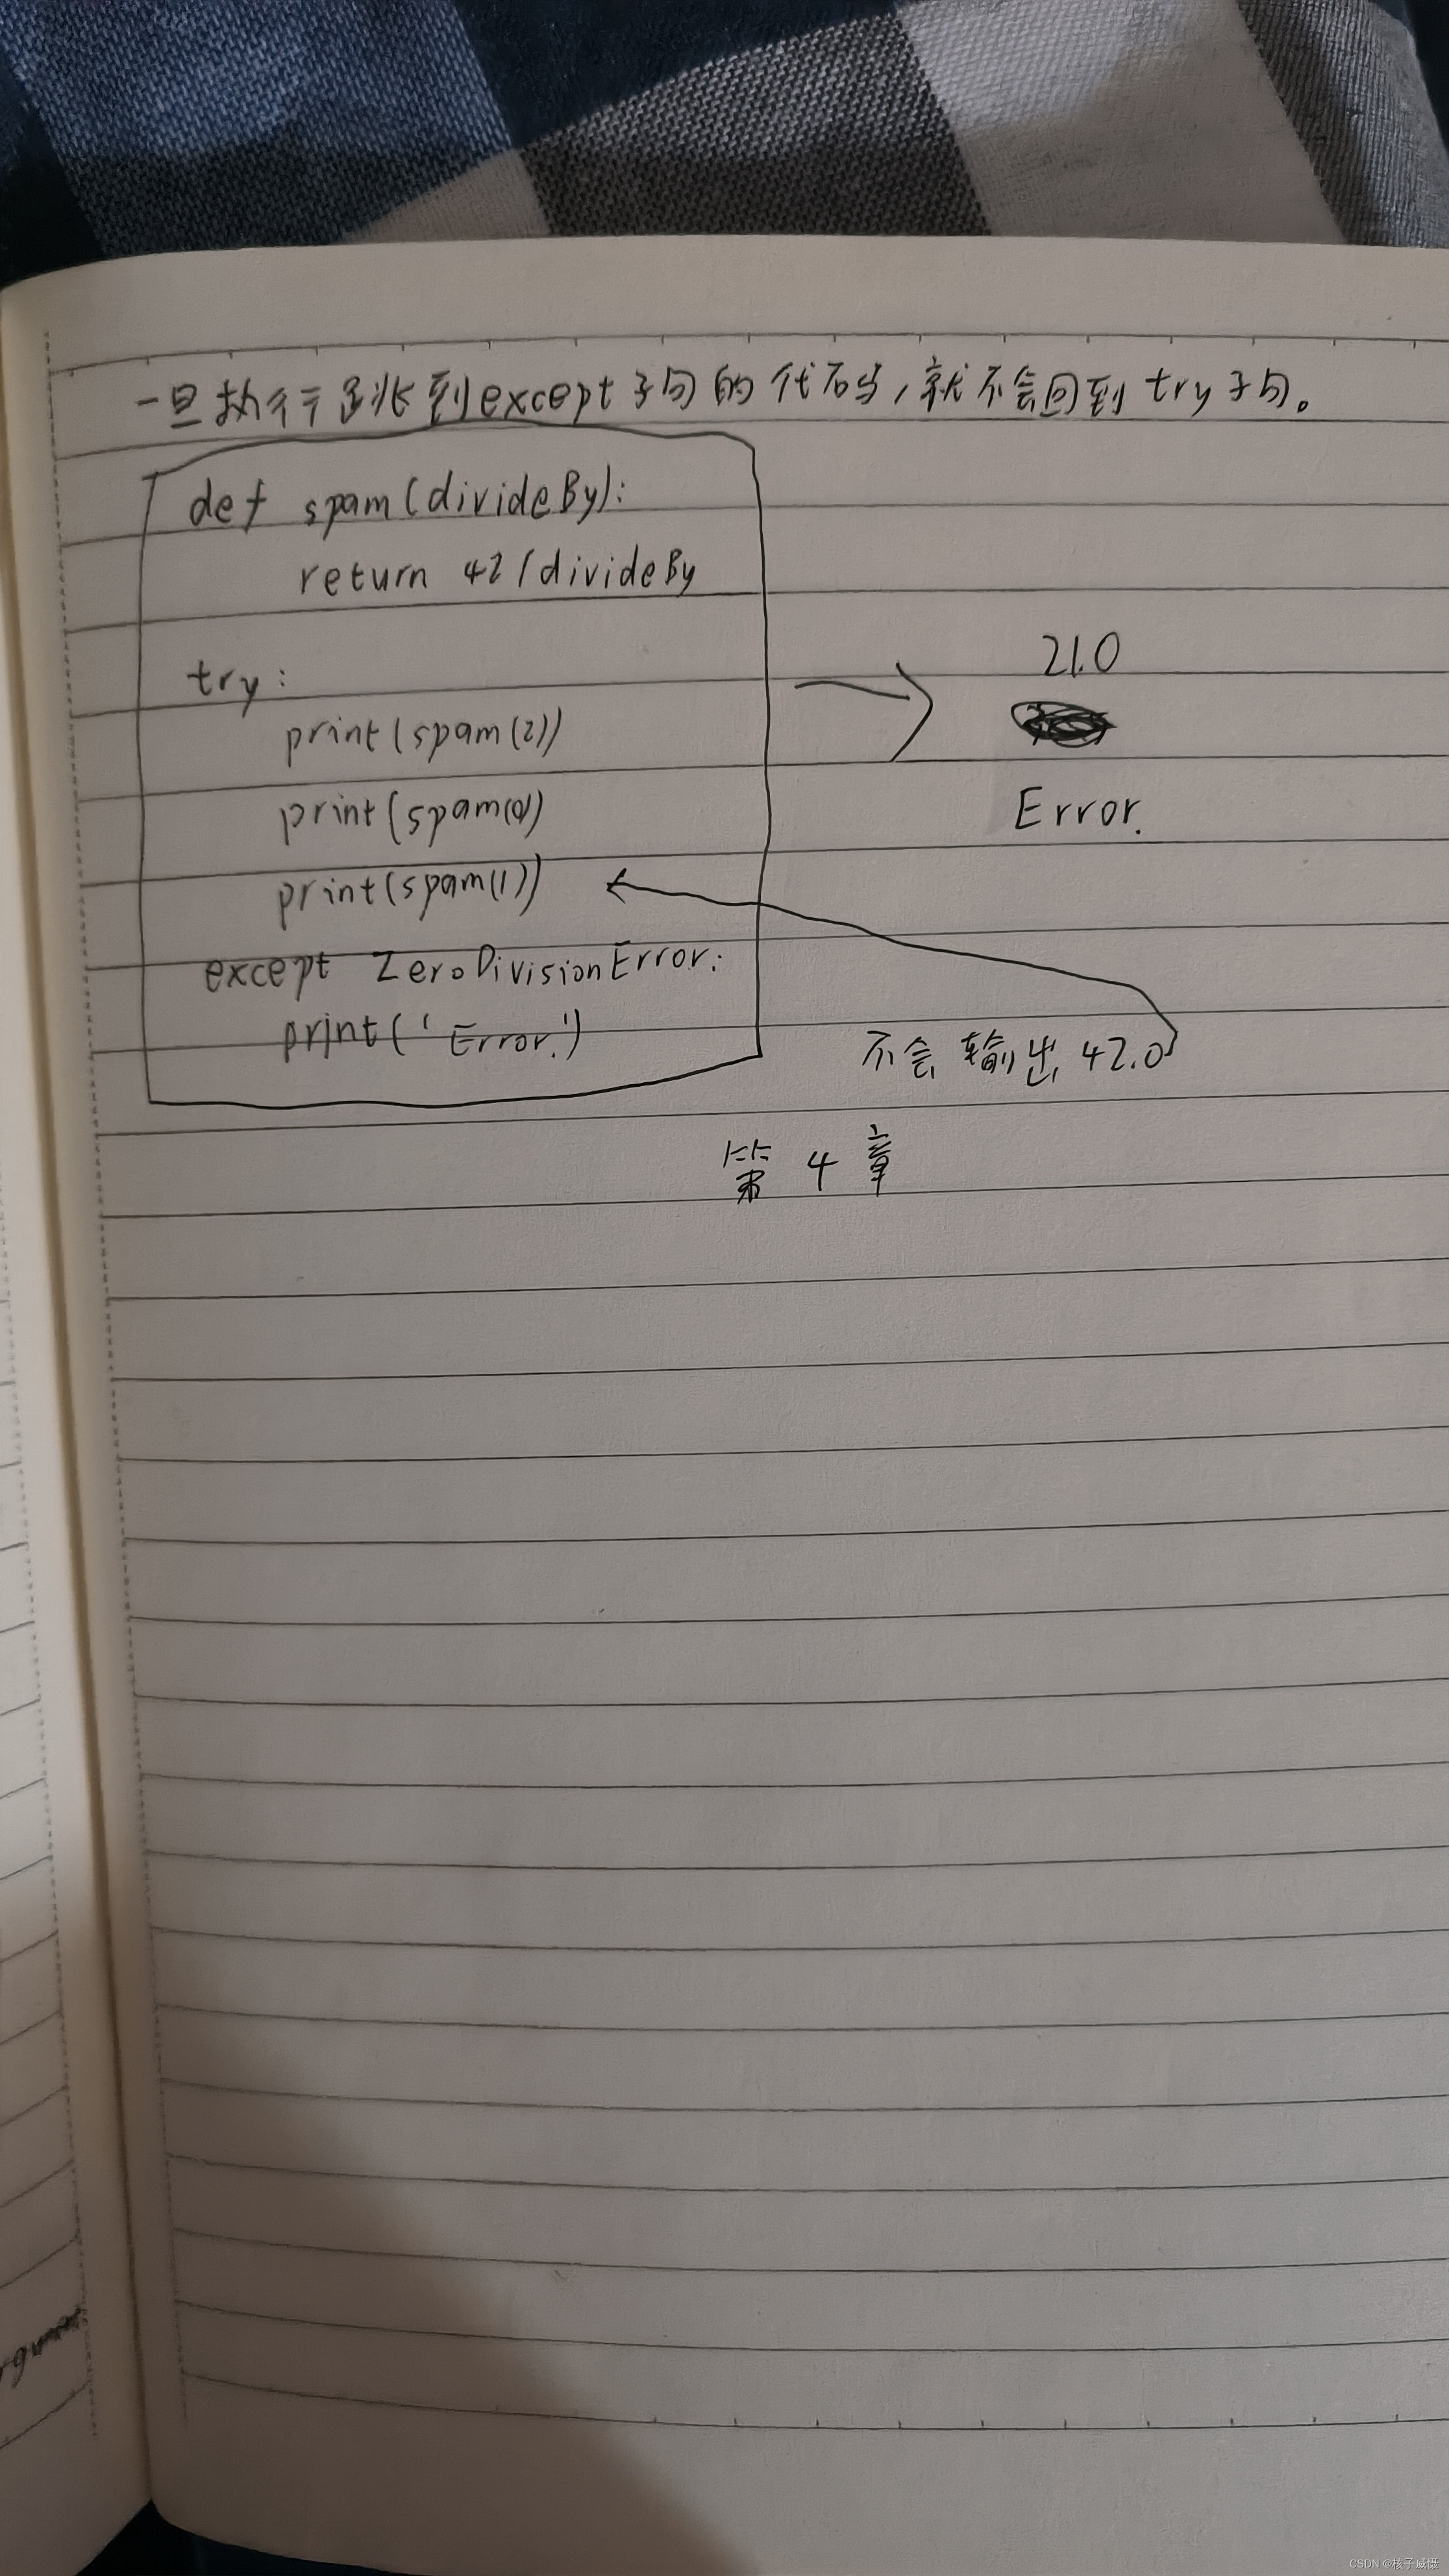 一旦执行跳到except子句的代码,就不会回到try子句。
def spam(divideBy):
return 42/divideBy
try:
print(spam(2))
print(spam(0))
print(spam(1))
except ZeroDivisionError:
print('Error.')
21.0
Error.
不会输出42.0
第4章
CSDN @核子威慑